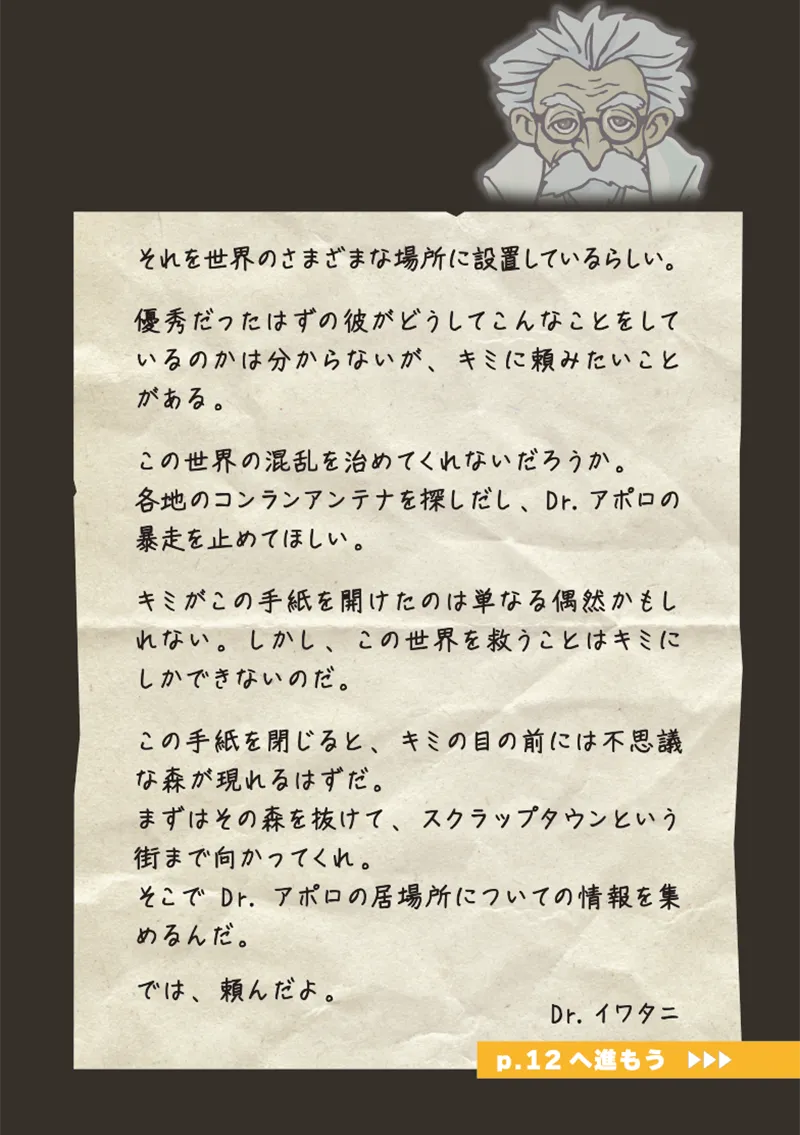 それを世界のさまざまな場所に設置しているらしい。
優秀だったはずの彼がどうしてこんなことをして
いるのかは分からないが、キミに頼みたいこと
がある。
この世界の混乱を治めてくれないだろうか。
各地のコンランアンテナを探しだし、Dr. アポロの
暴走を止めてほしい。
キミがこの手紙を開けたのは単なる偶然かもし
れない。しかし、この世界を救うことはキミに
しかできないのだ。
この手紙を閉じると、キミの目の前には不思議
な森が現れるはずだ。
まずはその森を抜けて、スクラップタウンという
街まで向かってくれ。
そこで Dr. アポロの居場所についての情報を集
めるんだ。
では、頼んだよ。
Dr. イワタニ
p.12 へ進もう ▶▶▶